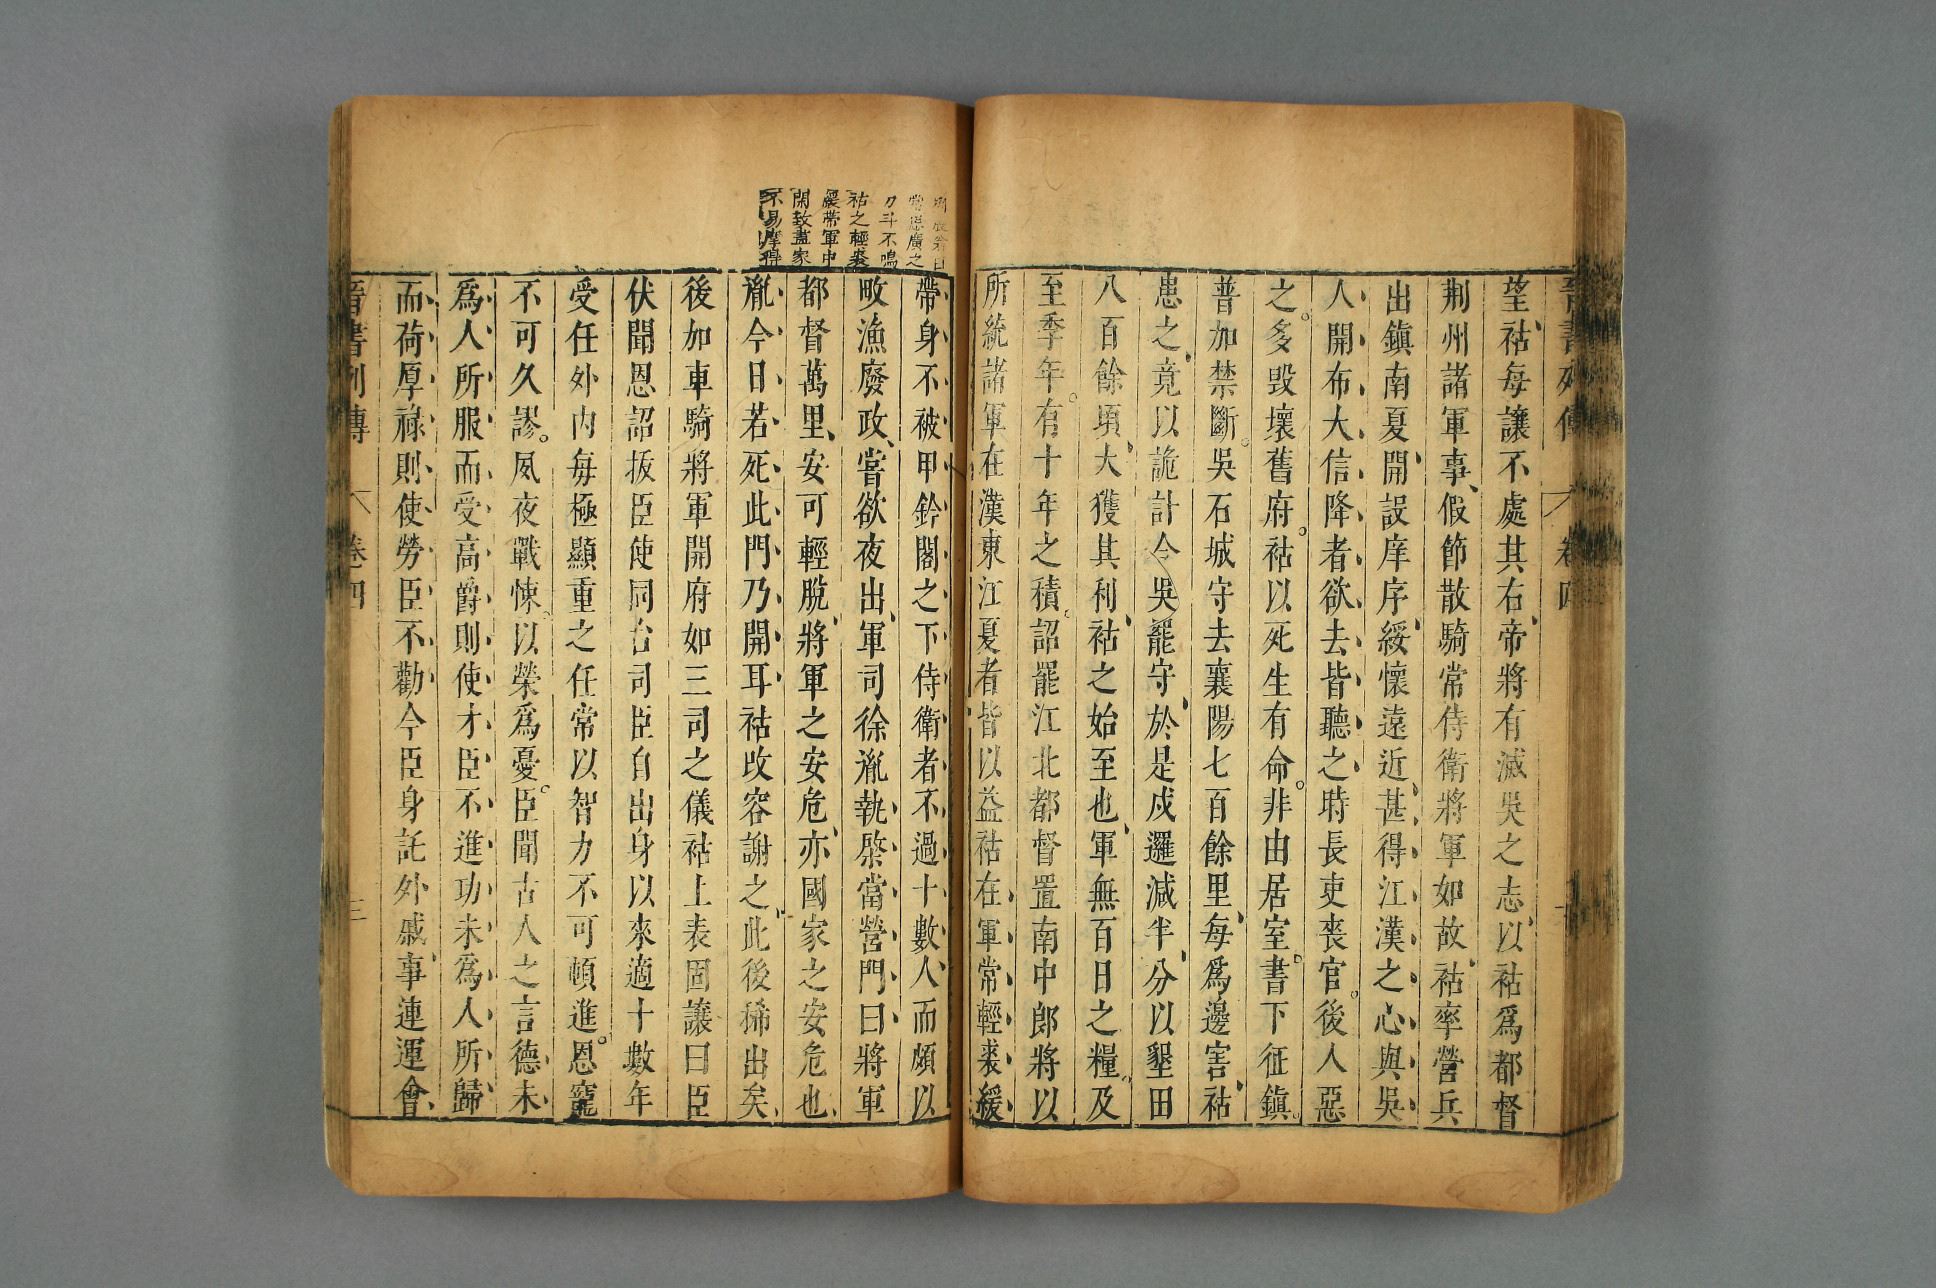 晉書列傳 卷四
望祜每讓不處其右帝將有滅吳之志以祜爲都督
荆州諸軍事假節散騎常侍衛將軍如故祜率營兵
出鎮南夏開設庠序綏懷遠近甚得江漢之心與吳
人開布大信降者欲去皆聽之時長吏喪官後人惡
之多毀壞舊府祜以死生有命非由居室書下征鎮
普加禁斷吳石城守去襄陽七百餘里每爲邊害祜
患之竟以詭計令吳罷守於是戍邏減半分以墾田
八百餘頃大獲其利祜之始至也軍無百日之糧及
至季年有十年之積詔罷江北都督置南中郎將以
所統諸軍在漢東江夏者皆以益祜在軍常輕裘緩
刀斗不鳴
祜之輕裘
緩帶軍中
閑致盖家
不易摩得
帶身不被甲鈴閣之下侍衛者不過十數人而頗以
畋漁廢政嘗欲夜出軍司徐胤執棨當營門曰將軍
都督萬里安可輕脫將軍之安危亦國家之安危也
胤今日若死此門乃開耳祜改容謝之此後稀出矣
後加車騎將軍開府如三司之儀祜上表固讓曰臣
伏聞恩詔拔臣使同台司臣自出身以來適十數年
受任外內每極顯重之任常以智力不可頓進恩寵
不可久謬夙夜戰悚以榮爲憂臣聞古人之言德未
爲人所服而受高爵則使才臣不進功未爲人所歸
而荷厚祿則使勞臣不勸今臣身託外戚事連運會
晉書列傳 卷四 三